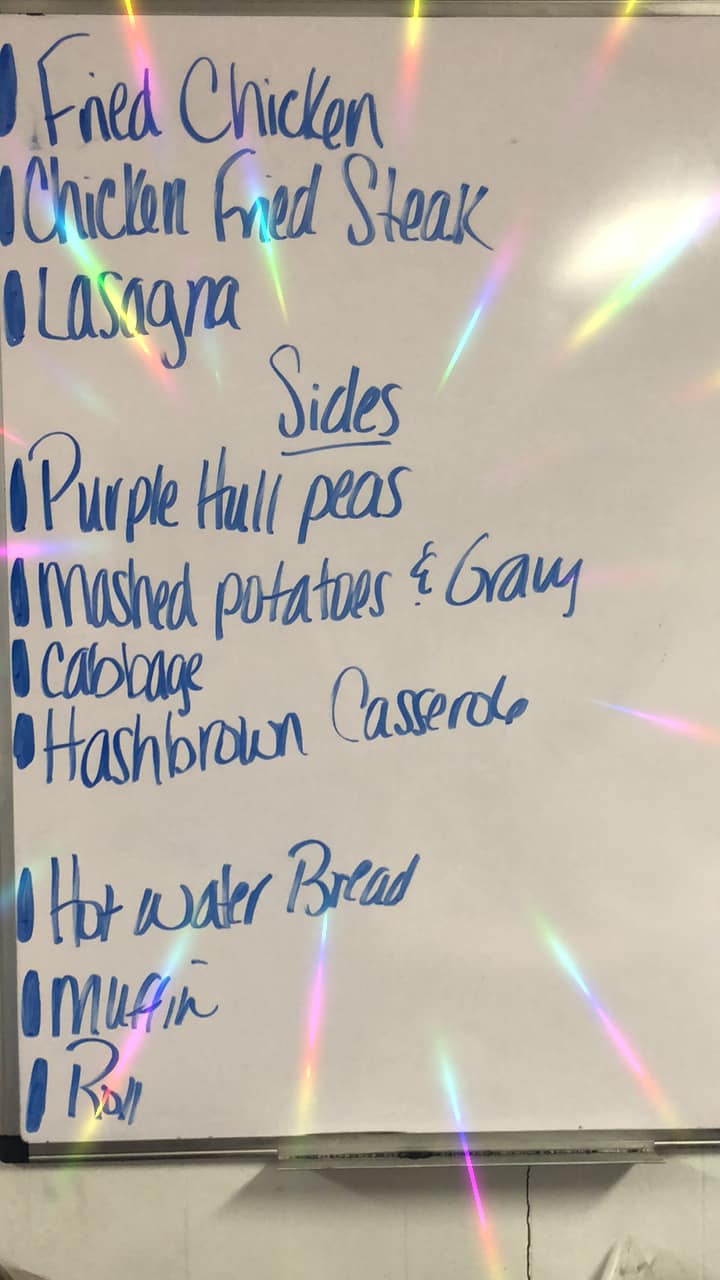 Fried Chicken
Chicken Fried Steak
Lasagna
Sides
Purple Hull peas
Mashed potatoes & Gravy
Cabbage
Hashbrown Casserole
Hot water Bread
Muffin
Roll